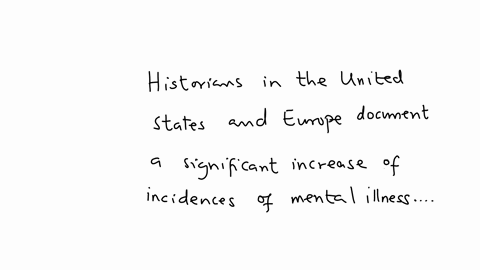 Historians in the United
states and Europe document
a significant increase of
incidences of mental illness....